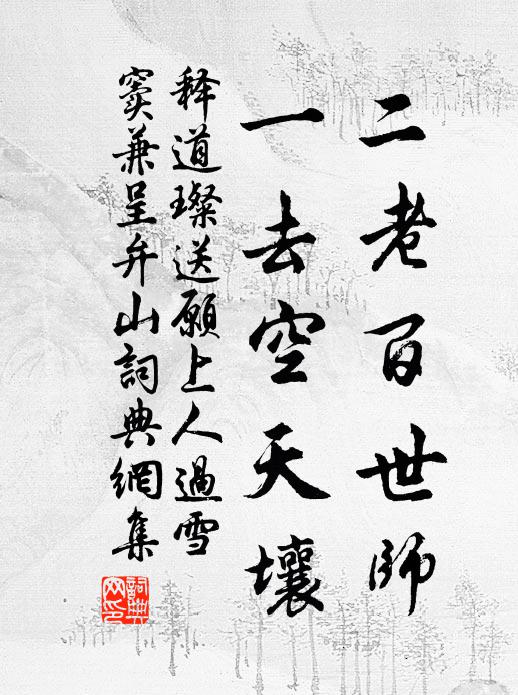 二老百世师
一去空天壤
释道璨送愿上人过雪
窦兼呈弁山詞典網集
詞典網印